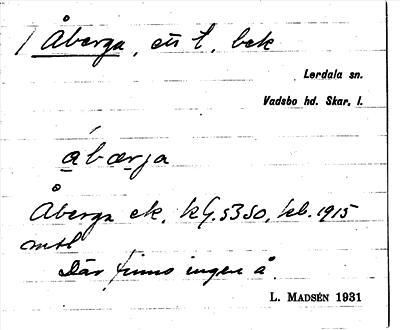 Åberga, ett t. bek
Lerdala sn.
Vadsbo hd. Skar. l.
ábærja
Åberga ek. kG. S3SO, kb. 1915
mtl
Där finns ingen å.
L. MADSÉN 1931